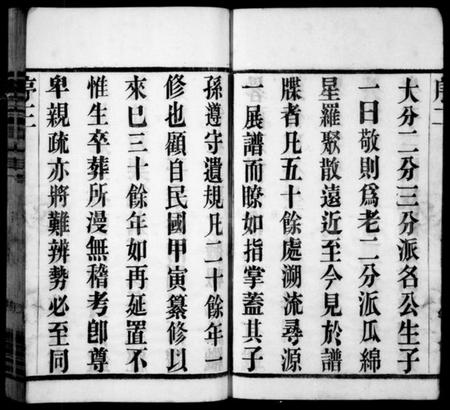 序二
大分二分三分派名公生子
一曰敬則爲老二分派瓜綿
星羅聚散遠近至今見於譜
牒者凡五十餘處溯流尋源
一展譜而瞭如指掌蓋其子
孫遵守遺規凡二十餘年一
修也顧自民國甲寅纂修以
來已三十餘年如再延置不
惟生卒葬所漫無稽考卽尊
卑親疏亦將難辨勢必至同
序三